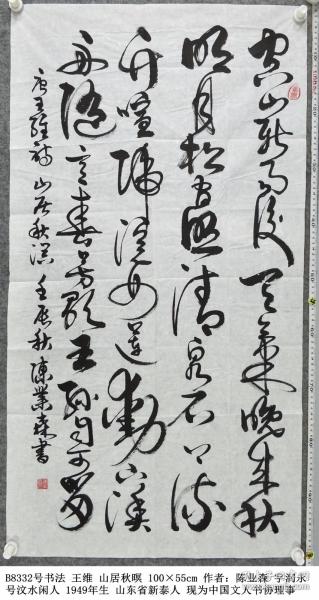 空山新雨後天氣晚来秋
明月松间照清泉石上流
竹喧歸浣女蓮動下漁
舟隨意春芳歇王孫自可留
唐王維詩山居秋暝壬辰秋陳業森書
B8332号书法 王维 山居秋暝 100×55cm 作者：陈业森 字润永
号汶水闲人 1949年生 山东省新泰人 现为中国文人书协理事